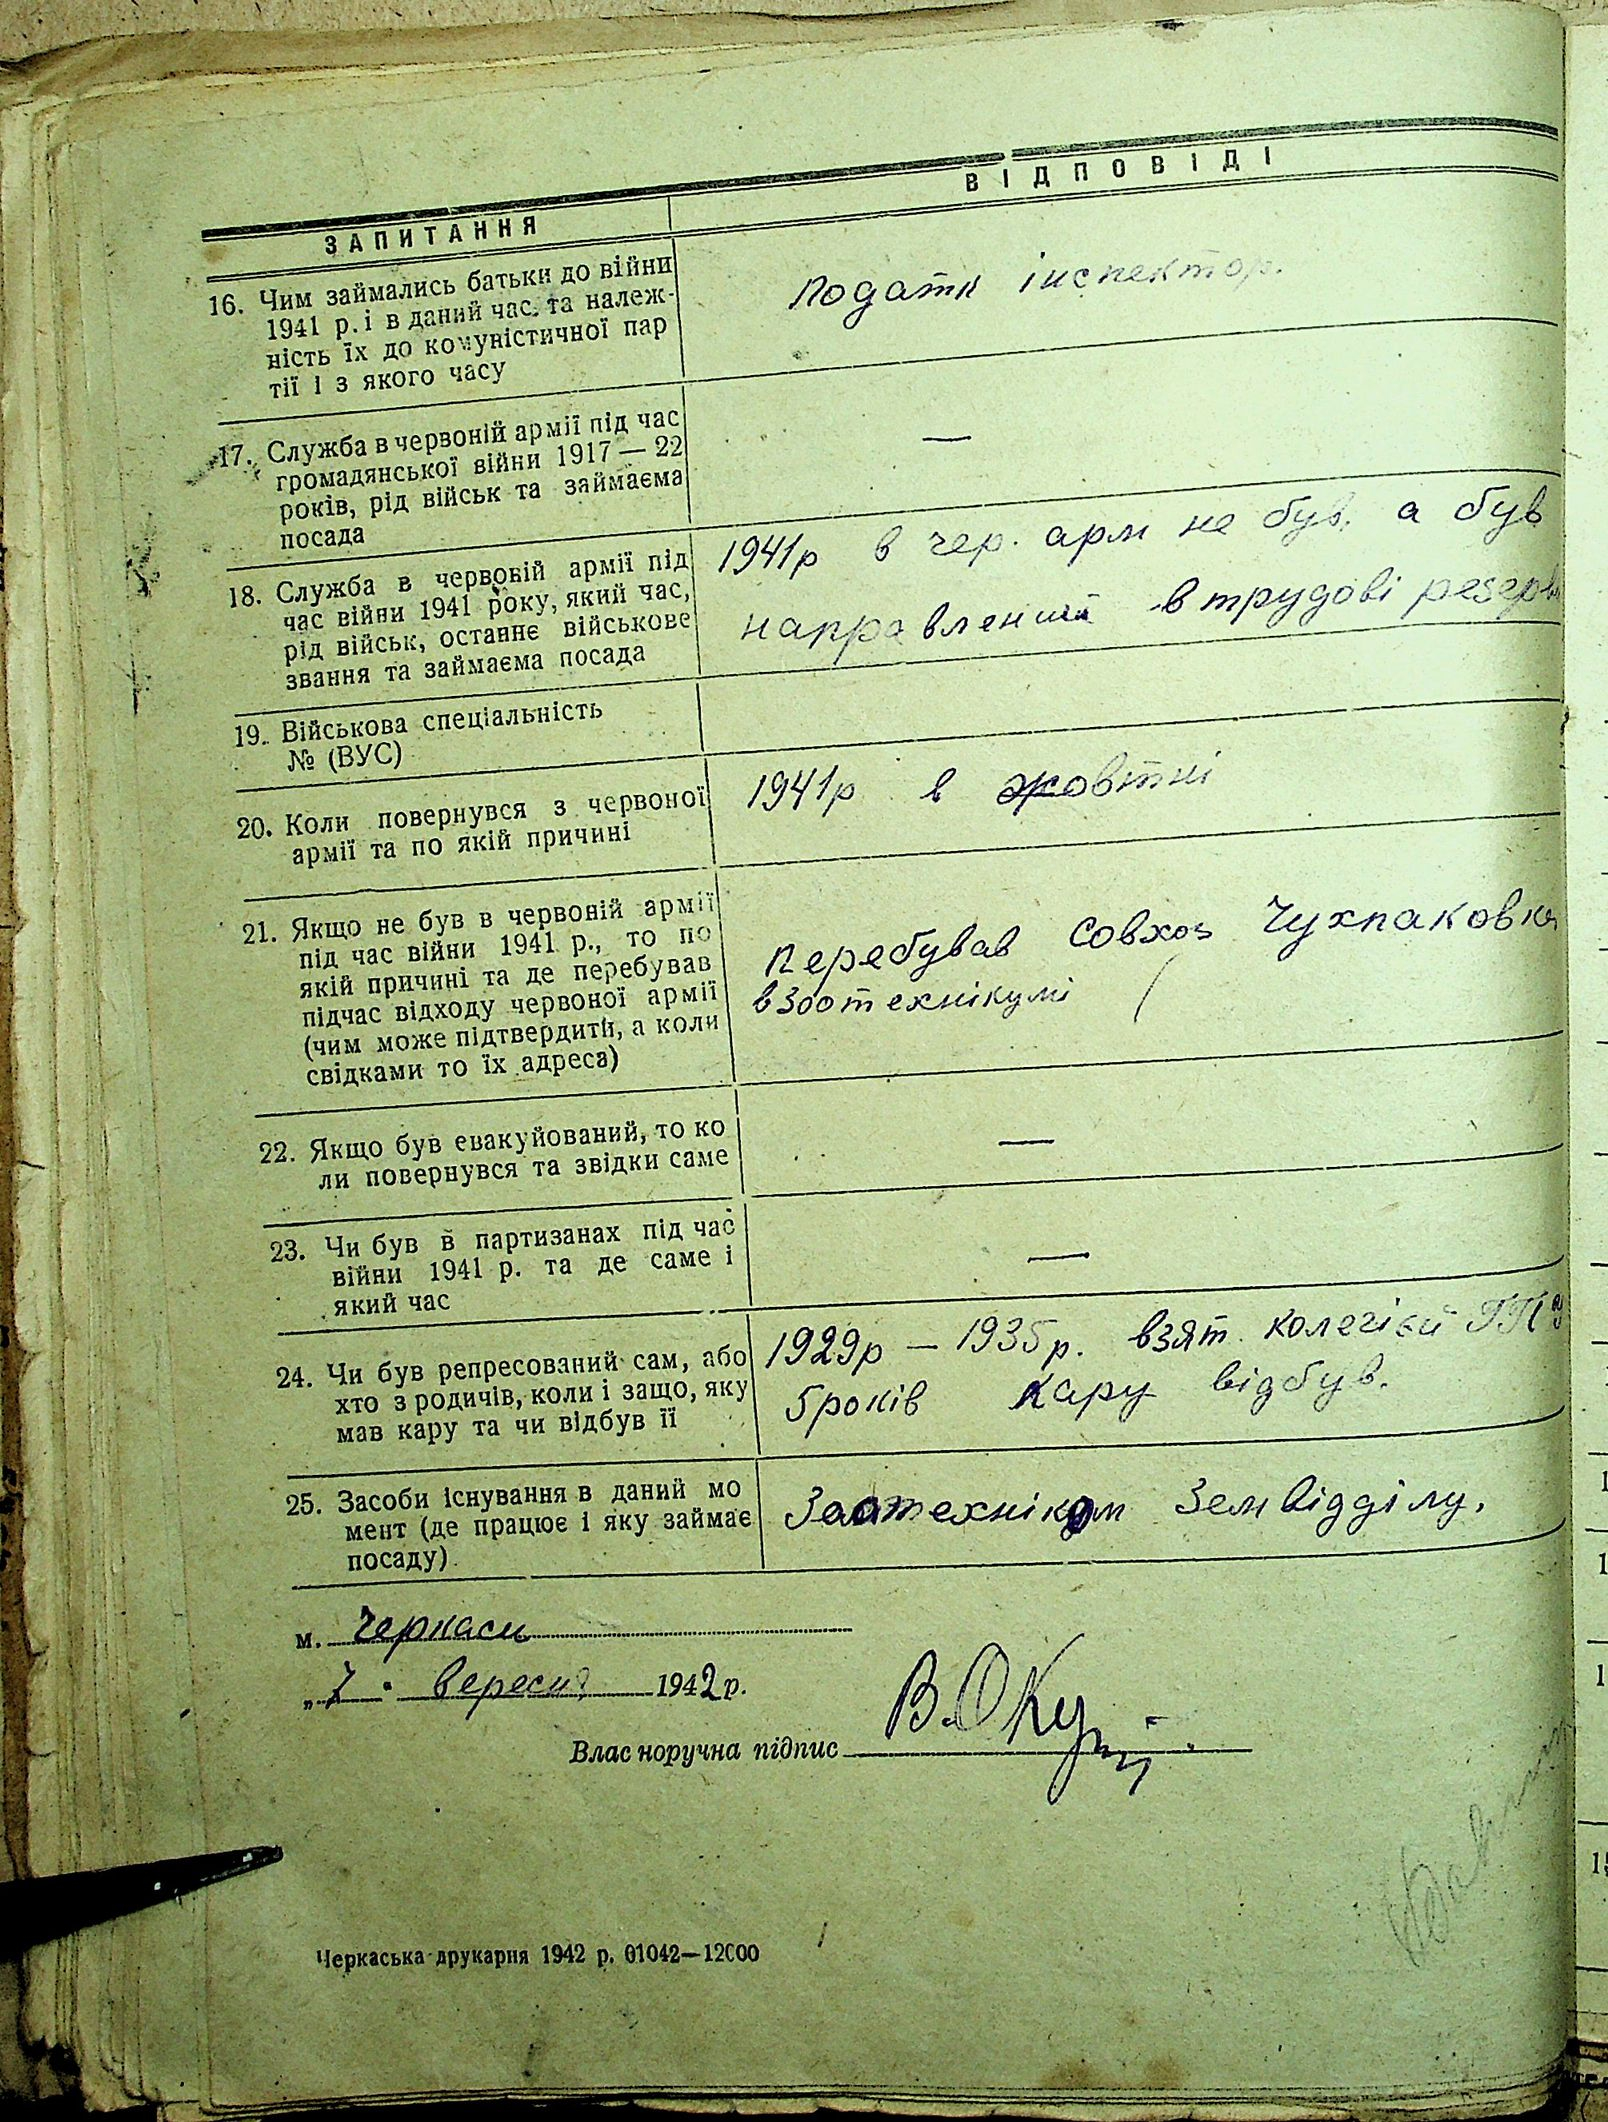 ЗАПИТАННЯ
ВІДПОВІДІ
16. Чим займались батьки до війни
1941 р. і в даний час, та належ-
ність їх до комуністичної пар
тії і з якого часу
Податк інспектор.
17. Служба в червоній армії під час
громадянської війни 1917 — 22
років, рід військ та займаєма
посада
—
18. Служба в червоній армії під
час війни 1941 року, який час,
рід військ, останнє військове
звання та займаєма посада
1941р в чер. арм не був, а був
направлений в трудові резерви
19. Військова спеціальність
№ (ВУС)
20. Коли повернувся з червоної
армії та по якій причині
1941р в жовтні
21. Якщо не був в червоній армії
під час війни 1941 р., то по
якій причині та де перебував
підчас відходу червоної армії
(чим може підтвердити, а коли
свідками то їх адреса)
Перебував Совхоз
в Зоотехнікумі
22. Якщо був евакуйований, то ко
ли повернувся та звідки саме
—
23. Чи був в партизанах під час
війни 1941 р. та де саме і
який час
—
24. Чи був репресований сам, або
хто з родичів, коли і защо, яку
мав кару та чи відбув її
1929р — 1935р. взят. колегією ГПУ
5років кару відбув.
25. Засоби існування в даний мо
мент (де працює і яку займає
посаду)
Зоотехніком Земвідділу.
м. Черкаси
„7" вересня 1942 р.
Власноручна підпис
Черкаська друкарня 1942 р. 01042—12000